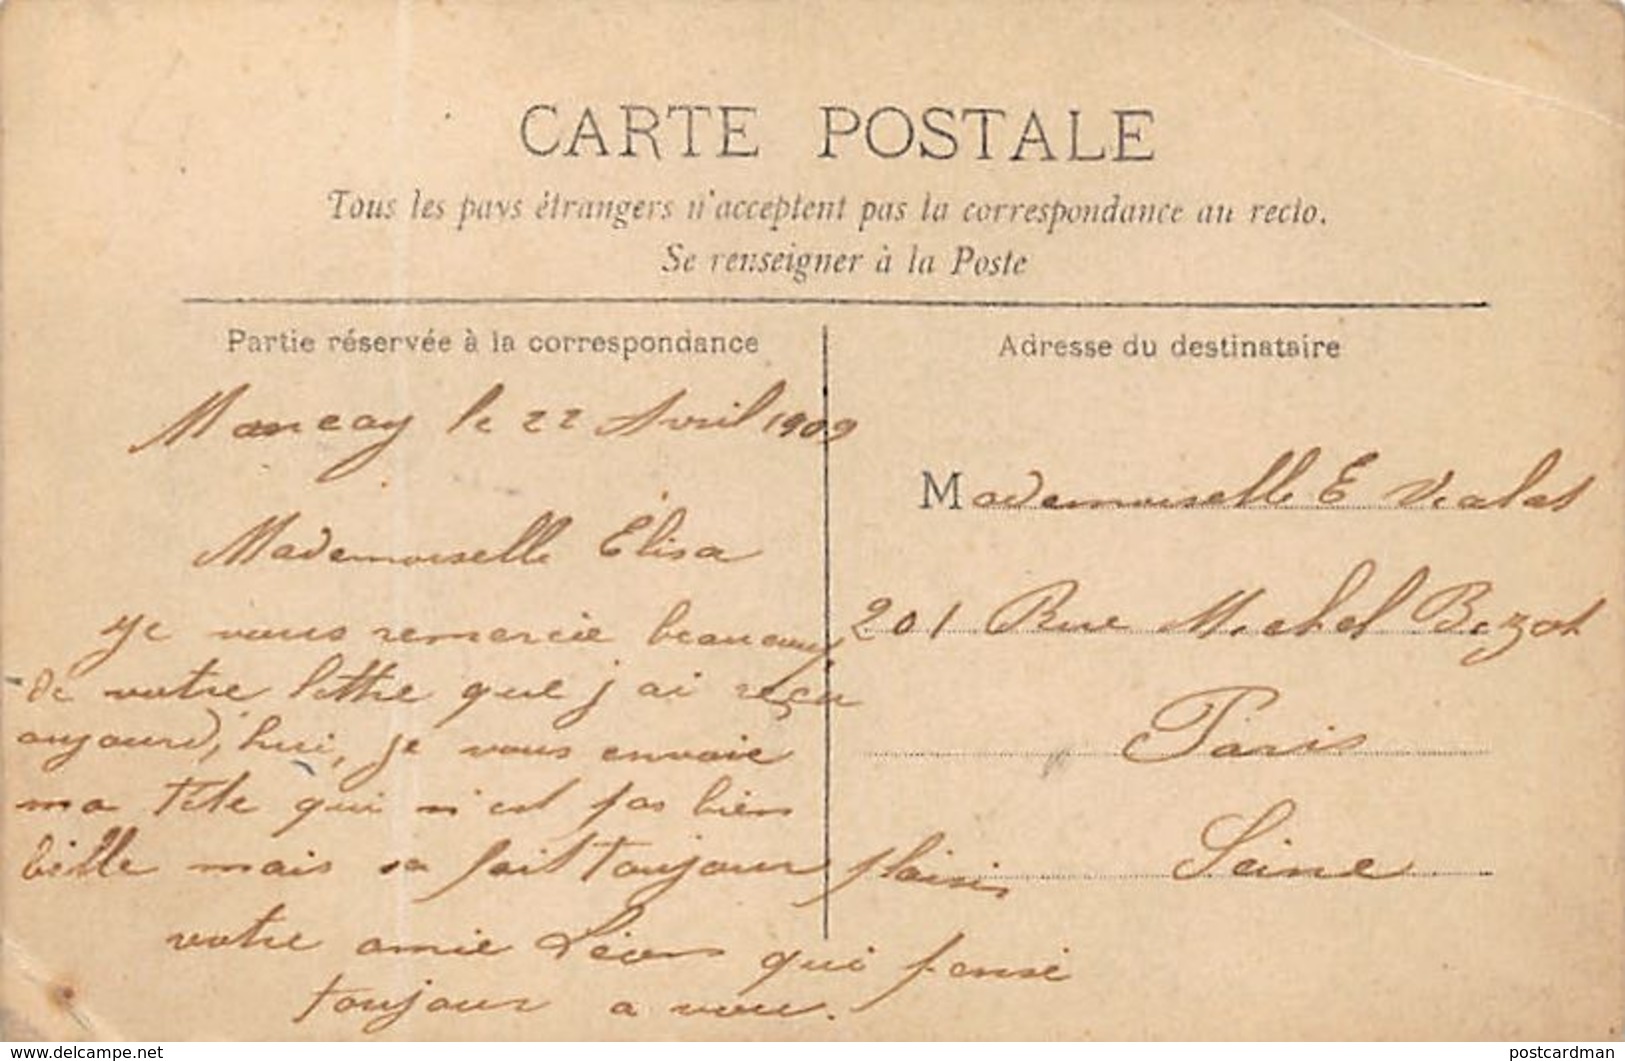 CARTE POSTALE
Tous les pays étrangers n'acceptent pas la correspondance au recto.
Se renseigner à la Poste
Partie réservée à la correspondance
le 22 Avril 1909
Mademoiselle Elisa
Je vous remercie beaucoup
de votre lettre que j ai reçu
aujourd, hui, je vous envoie
ma tête qui n'est pas bien
belle mais sa fait toujour plaisir
votre amie Léon qui pense
toujour a vou.
Adresse du destinataire
Mademoiselle E Vialat
201 Rue Michel Bizot
Paris
Seine
www.delcampe.net
postcardman